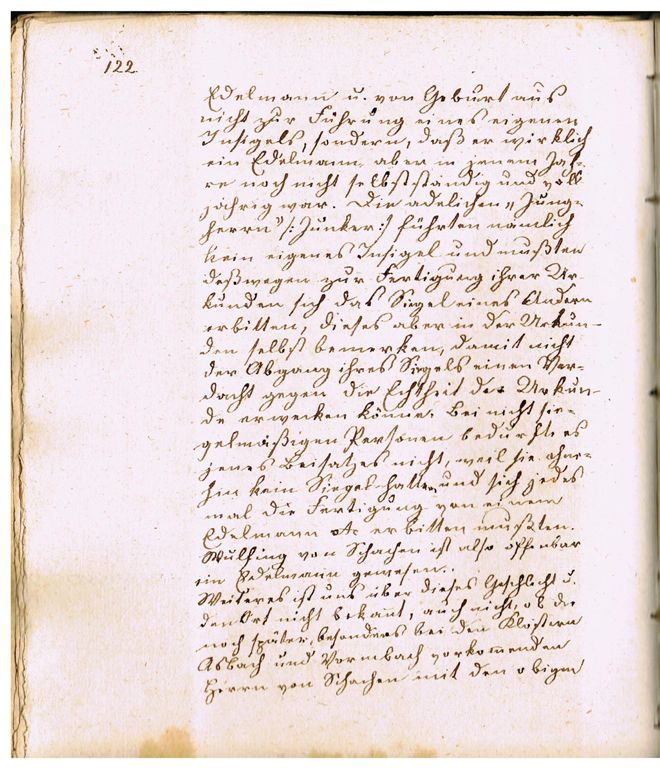 122
Edelmann u. von Geburt aus
nicht zur Führung eines eigenen
Insigels, sondern, daß er wirklich
ein Edelmann, aber in jenem Jah-
re noch nicht selbstständig und voll-
jährig war. Die adelichen „Jung-
herrn“ /: Junker :/ führten nämlich
kein eigenes Insigel und mußten
deßwegen zur Fertigung ihrer Ur-
kunden sich das Siegel eines Andern
erbitten, dieses aber in der Urkun-
den selbst bemerken, damit nicht
der Abgang ihres Siegels einen Ver-
dacht gegen die Echtheit der Urkun-
de erwecken könne. Bei nicht sie-
gelmäßigen Personen bedurfte es
jenes Beisatzes nicht, weil sie ohne-
hin kein Siegel hatten und sich jedes
mal die Fertigung von einem
Edelmann etc erbitten mußten.
Wulfing von Schachen ist also offenbar
ein Edelmann gewesen.
Weiteres ist uns über dieses Geschlecht u.
den Ort nicht bekannt, auch nicht, ob die
noch später, besonders bei den Klöstern
Asbach und Vormbach vorkommenden
Herrn von Schachen mit den obigen